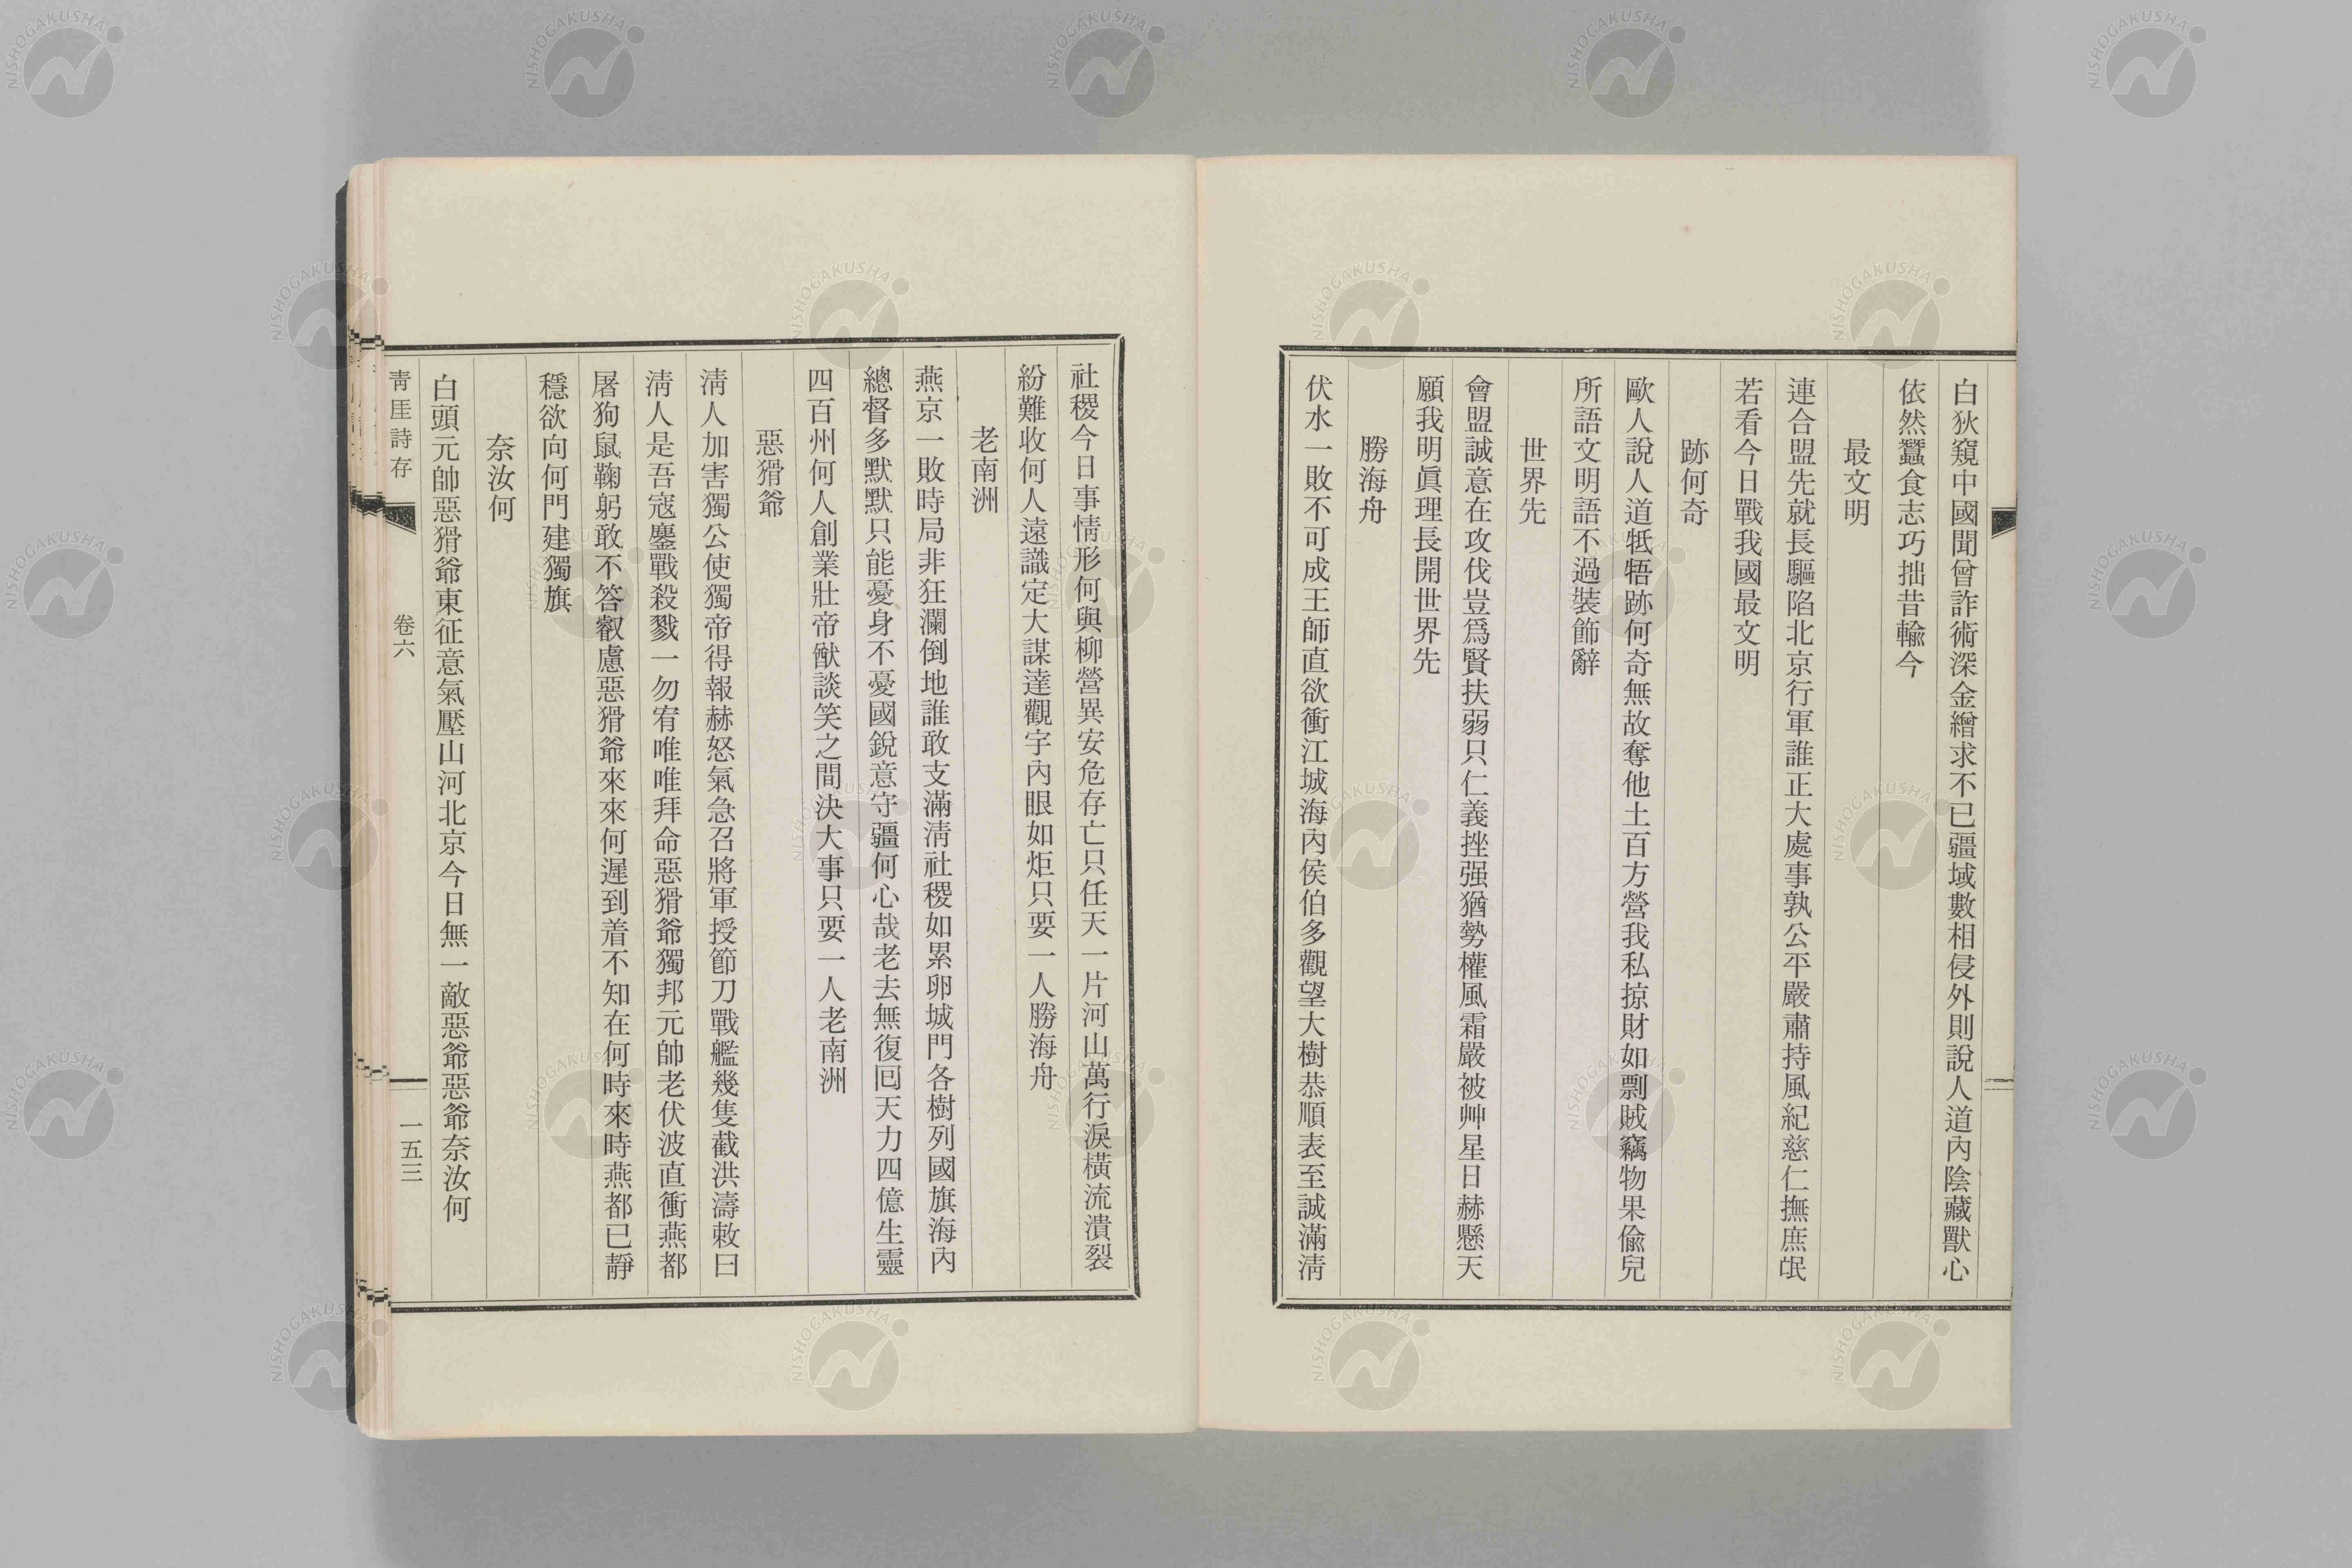 白狄窺中國聞曾詐術深金繒求不已疆域數相侵外則說人道內陰藏獸心
依然蠶食志巧拙昔輸今
最文明
連合盟先就長驅陷北京行軍誰正大處事孰公平嚴肅持風紀慈仁撫庶氓
若看今日戰我國最文明
跡何奇
歐人說人道牴牾跡何奇無故奪他土百方營我私掠財如剽賊竊物果偸兒
所語文明語不過裝飾辭
世界先
會盟誠意在攻伐豈爲賢扶弱只仁義挫强猶勢權風霜嚴被艸星日赫懸天
願我明眞理長開世界先
勝海舟
伏水一敗不可成王師直欲衝江城海內侯伯多觀望大樹恭順表至誠滿淸
社稷今日事情形何與柳營異安危存亡只任天一片河山萬行淚橫流潰裂
紛難收何人遠識定大謀達觀宇內眼如炬只要一人勝海舟
老南洲
燕京一敗時局非狂瀾倒地誰敢支滿淸社稷如累卵城門各樹列國旗海內
總督多默默只能憂身不憂國銳意守疆何心哉老去無復囘天力四億生靈
四百州何人創業壯帝猷談笑之間決大事只要一人老南洲
惡猾爺
淸人加害獨公使獨帝得報赫怒氣急召將軍授節刀戰艦幾隻截洪濤敕曰
淸人是吾寇鏖戰殺戮一勿宥唯唯拜命惡猾爺獨邦元帥老伏波直衝燕都
屠狗鼠鞠躬敢不答叡慮惡猾爺來來何遲到着不知在何時來時燕都已靜
穩欲向何門建獨旗
奈汝何
白頭元帥惡猾爺東征意氣壓山河北京今日無一敵惡爺惡爺奈汝何
靑厓詩存
卷六
一五三
NISHOGAKUSHA